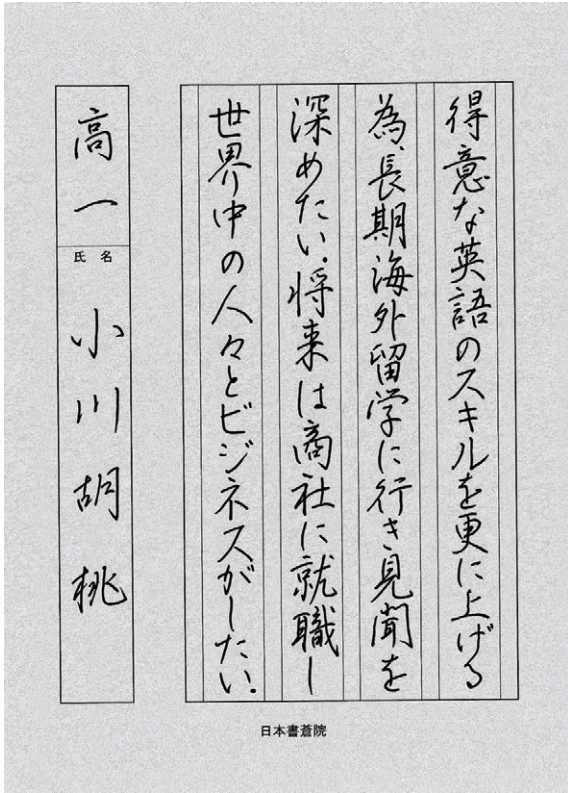 得意な英語のスキルを更に上げる
為、長期海外留学に行き見聞を
深めたい。将来は商社に就職し
世界中の人々とビジネスがしたい。
高一
氏名
小川胡桃
日本書蒼院